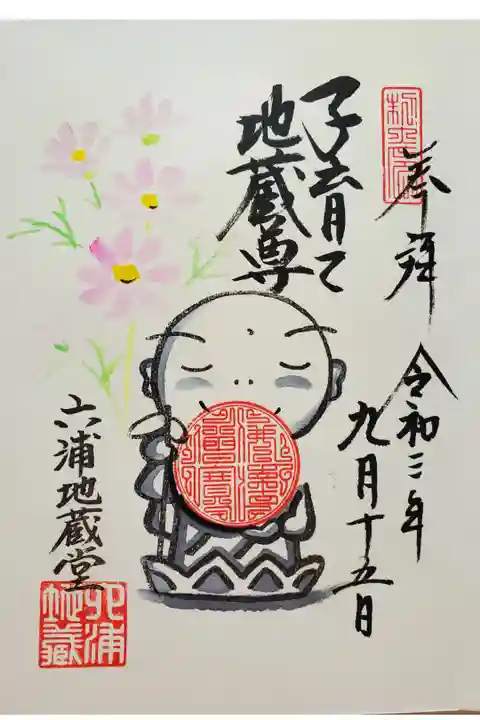 奉拝
令和三年
九月十五日
子育て
地蔵尊
六浦地蔵堂
六浦
地蔵